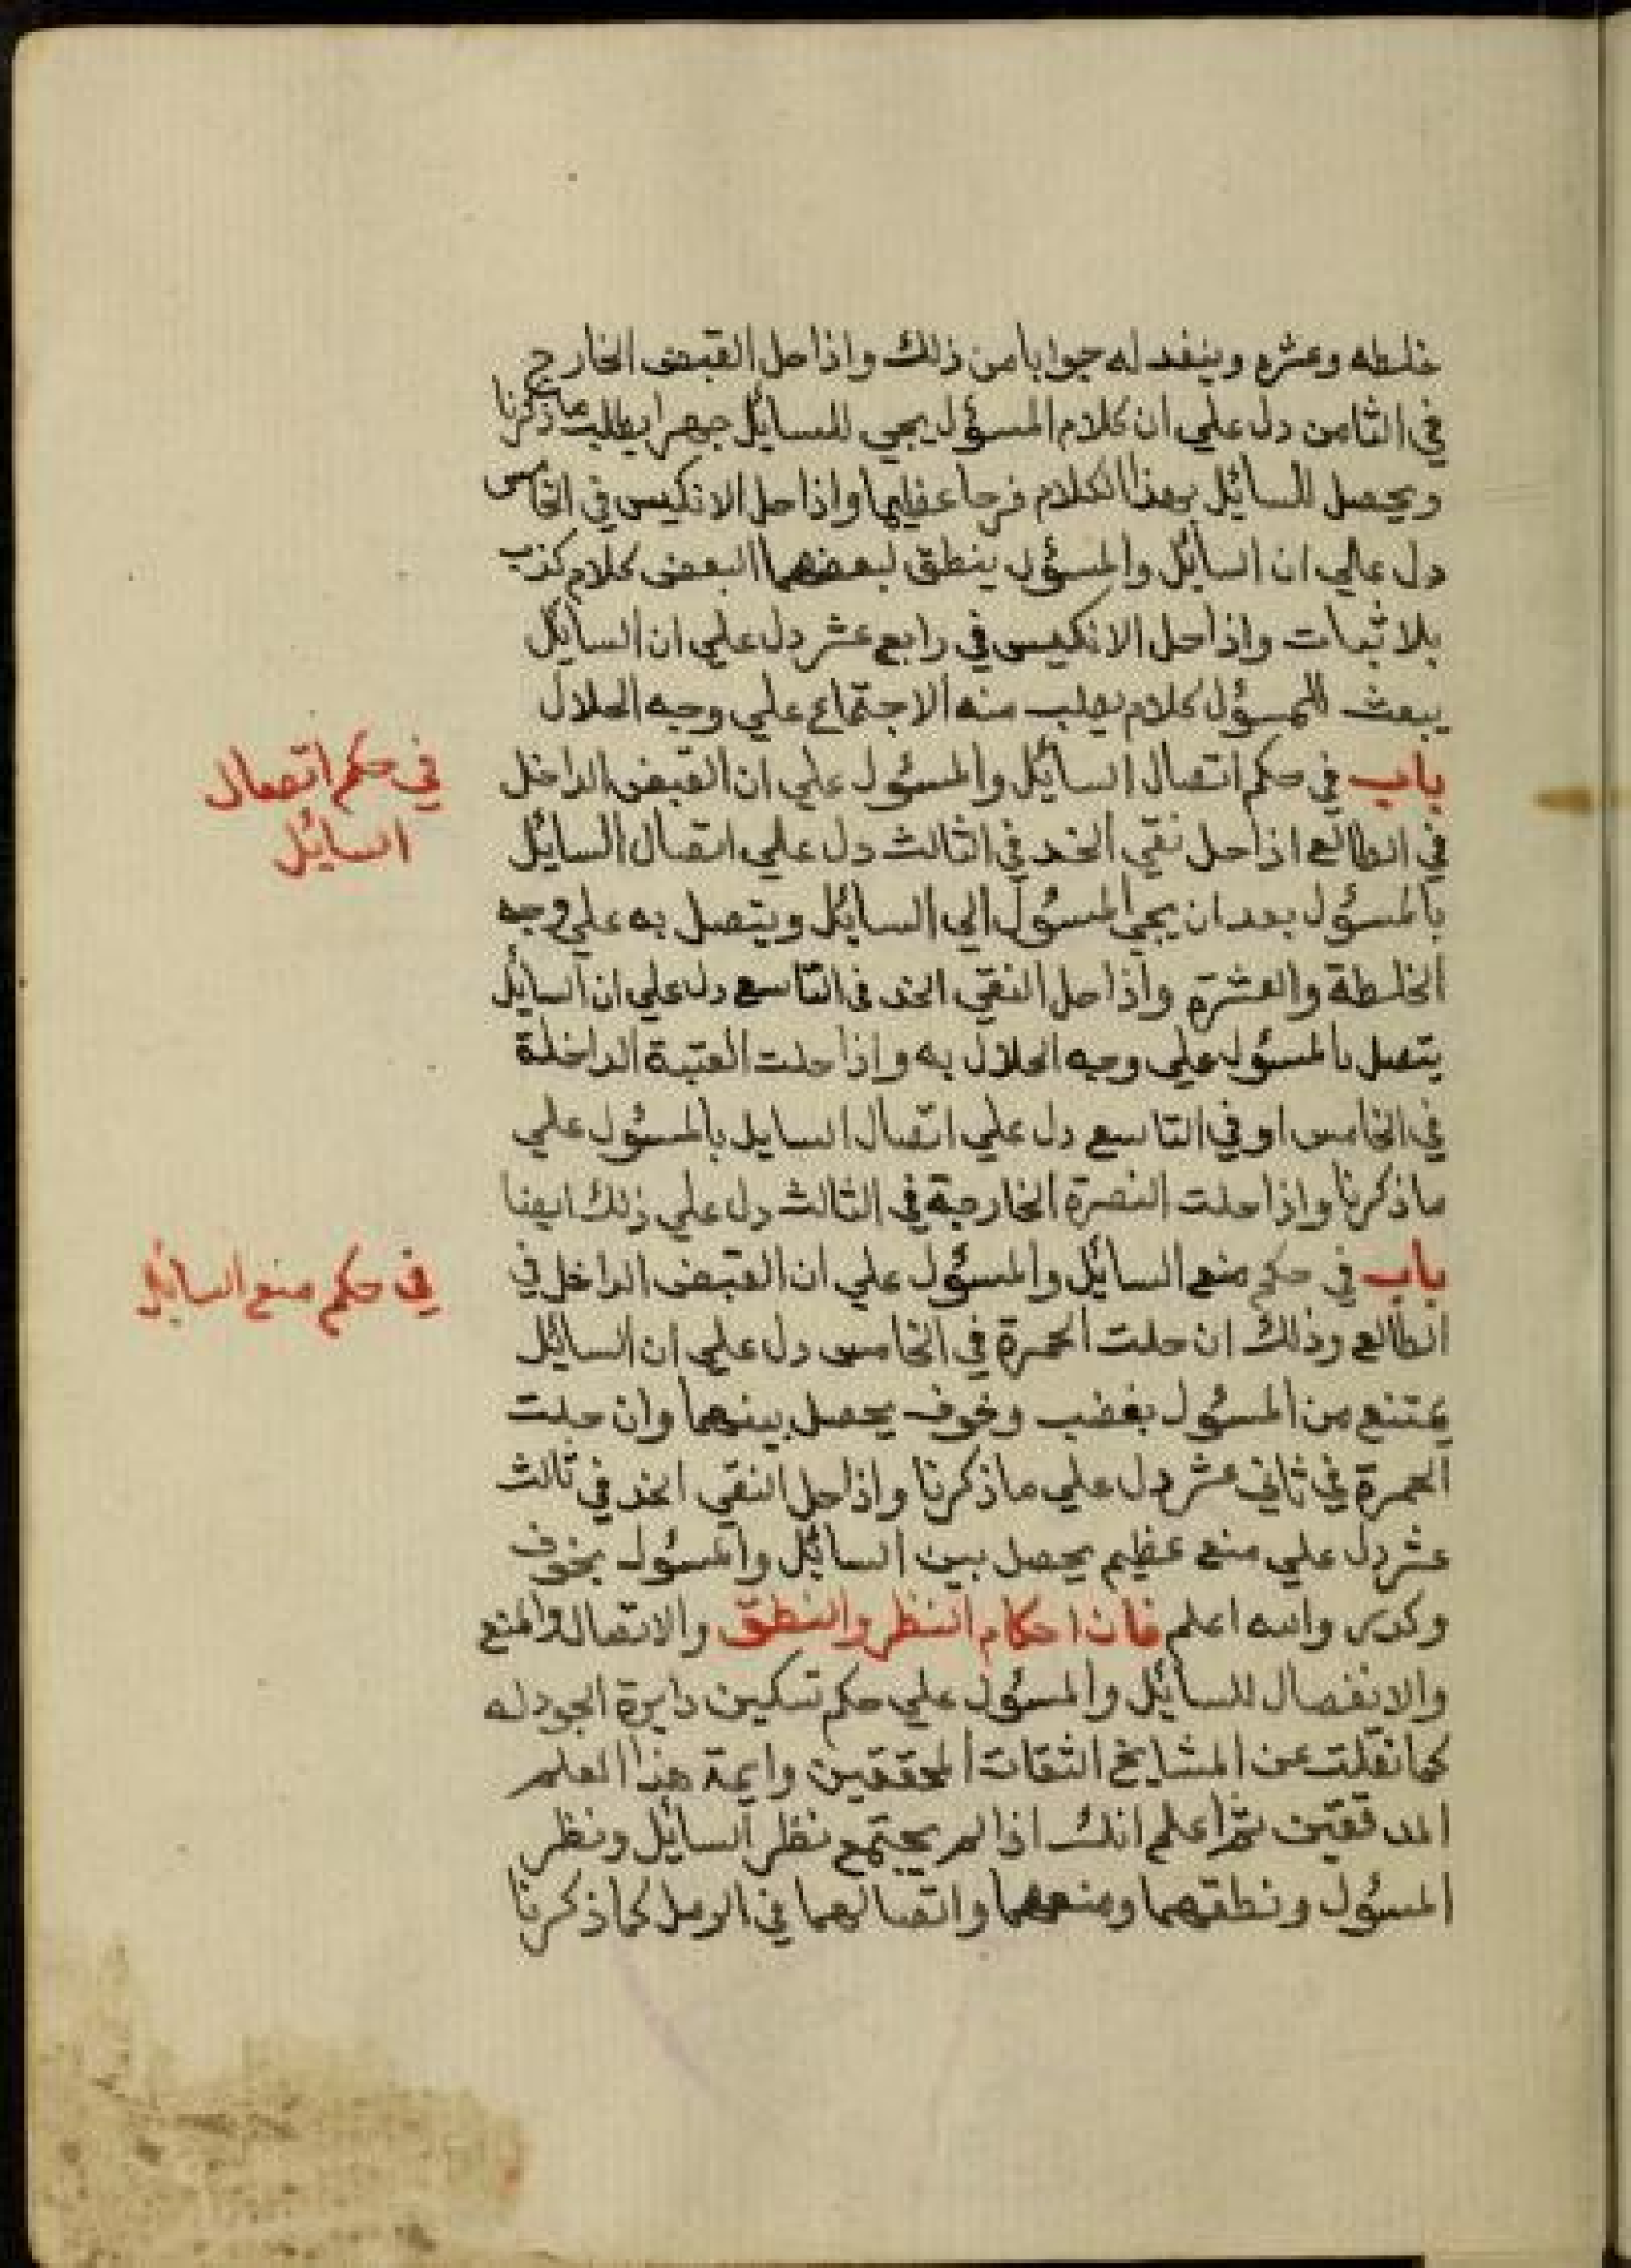 خلطه وعشره وينفد له جوابا من ذلك واذا حل القبض الخارج
في الثامن دل علي ان كلام المسؤل يجي للسائل جهرا يطلب ما ذكرنا
ويحصل للسائل بهذا الكلام فرحا عظيما واذا حل الانكيس في الخامس
دل علي ان السائل والمسؤل ينطق لبعضهما البعض كلام كذب
بلا ثبات واذا حل الانكيس في رابع عشر دل علي ان السائل
يبعث للمسؤل كلام يطلب منه الاجتماع علي وجه الحلال
باب في حكم اتصال السائل والمسئول علي ان القبض الداخل
في حكم اتصال
السائل
في الطالع اذا حل نقي الخد في الثالث دل علي اتصال السائل
بالمسؤل بعد ان يجي المسئول الي السائل ويتصل به علي وجه
الخلطة والعشرة واذا حل النقي الخد في التاسع دل علي ان السائل
يتصل بالمسئول علي وجه الحلال به واذا حلت العتبة الداخلة
في الخامس او في التاسع دل علي اتصال السايل بالمسئول علي
ما ذكرنا واذا حلت النصرة الخارجة في الثالث دل علي ذلك ايضا
باب في حكم منع السائل والمسئول علي ان القبض الداخل في
في حكم منع السائل
الطالع وذلك ان حلت الحمرة في الخامس دل علي ان السائل
يمتنع من المسئول بغضب وخوف يحصل بينهما وان حلت
الحمرة في ثاني عشر دل علي ما ذكرنا واذا حل النقي الخد في ثالث
عشر دل علي منع عظيم يحصل بين السائل والمسئول بخوف
وكدر والله اعلم فان احكام النظر والنطق والاتصال والمنع
والانفصال للسائل والمسئول علي حكم تسكين دايرة الجودله
كما نقلت عن المشايخ الثقات المحققين وايمة هذا العلم
المدققين ثم اعلم انك اذا لم يجتمع نظر السائل ونظر
المسئول ونطقهما ومنعهما واتصالهما في الرمل كما ذكرنا